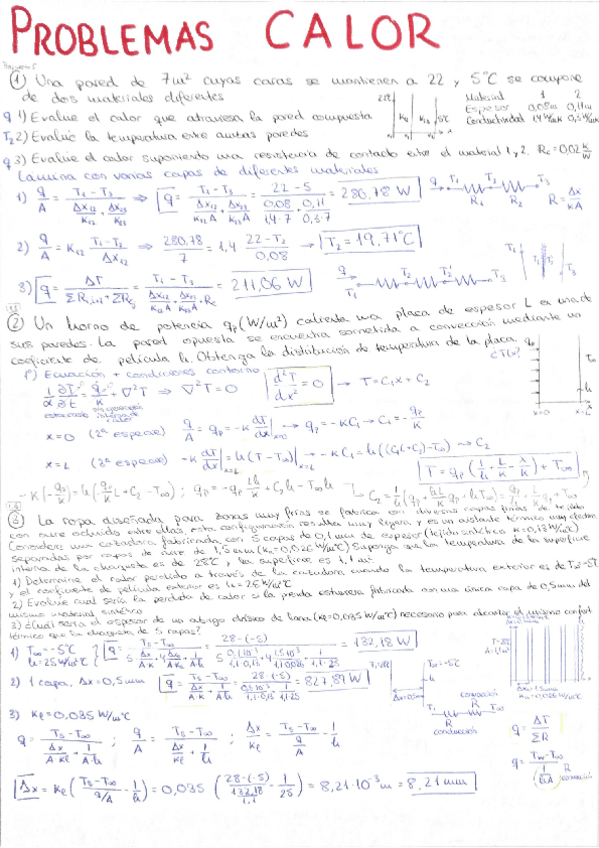 PROBLEMAS CALOR
① Una pared de 7m² cuyas caras se mantienen a 22 y 5°C se compone
de dos materiales diferentes
Material 1 2
Espesor 0,08m 0,11m
q 1) Evalue el calor que atraviesa la pared compuesta
T₂ 2) Evalúe la temperatura entre ambas paredes
q 3) Evalúe el calor suponiendo una resistencia de contacto entre el material 1 y 2. Rc=0,02 K/W
Lámina con varias capas de diferentes materiales
1) q/A = (T₁ - T₃)/(Δx₁₂/K₁₂ + Δx₂₃/K₂₃) ⇒ q = (T₁ - T₃)/(Δx₁₂/K₁₂A + Δx₂₃/K₂₃A) = = 280,78 W
R₁ R₂ R = Δx/KA
2) q/A = K₁₂ (T₁ - T₂)/Δx₁₂ ⇒ 280,78/7 = 1,4 (22 - T₂)/0,08 → T₂ = 19,71°C
3) q = = 211,06 W
② Un horno de potencia qp (W/m²) calienta una placa de espesor L en una de
sus paredes. La pared opuesta se encuentra sometida a convección mediante un
coeficiente de película h. Obtenga la distribución de temperatura de la placa.
¿T(x)?
1º) Ecuación + condiciones contorno
1/α ∂T/∂t = q/K + ∇²T ⇒ ∇²T = 0 d²T/dx² = 0 → T = C₁x + C₂
x=0 (2ª especie) q/A = qp = -K dT/dx|x=0 → qp = -KC₁ → C₁ = -qp/K
x=L (3ª especie) -K dT/dx|x=L = h(T - T∞)|x=L → -KC₁ = h((C₁L+C₂) - T∞) → C₂
x=0 x=L
T = qp (1/h + L/K - x/K) + T∞
③ La ropa diseñada para zonas muy frías se fabrica con diversas capas finas de tejido
con aire ocluido entre ellas, esta configuración resulta muy ligera y es un aislante térmico muy efectivo
Considere una cazadora fabricada con 5 capas de 0,1 mm de espesor (tejido sintético K=0,13 W/m°C)
separadas por capas de aire de 1,5mm (Ka=0,026 W/m°C) Suponga que la temperatura de la superficie
interna de la chaqueta es de 28°C y la superficie es 1,1 m²
1) Determine el calor perdido a través de la cazadora cuando la temperatura exterior es de T∞=-5°C
y el coeficiente de película exterior es h=25 W/m²°C
2) Evalúe cual sería la pérdida de calor si la prenda estuviera fabricada con una única capa de 0,5mm del
mismo material sintético
3) ¿Cuál sería el espesor de un abrigo clásico de lana (Kl=0,035 W/m°C) necesario para alcanzar el mismo confort
térmico que la chaqueta de 5 capas?
1) T∞ = -5°C
h = 25 W/m²°C
q = = 132,18 W
2) 1 capa, Δx = 0,5mm q = = 827,87 W
T∞ = -5°C
convección
conducción
3) Kl = 0,035 W/m°C
q = (Ts - T∞)/(Δx/AKl + 1/Ah) ; q/A = (Ts - T∞)/(Δx/Kl + 1/h) ; Δx/Kl = (Ts - T∞)/(q/A) - 1/h
q = ΔT/ΣR
Δx = Kl ((Ts - T∞)/(q/A) - 1/h) = 0,035 ((28-(-5))/(132,18/1,1) - 1/25) = 8,21·10⁻³ m = 8,21 mm